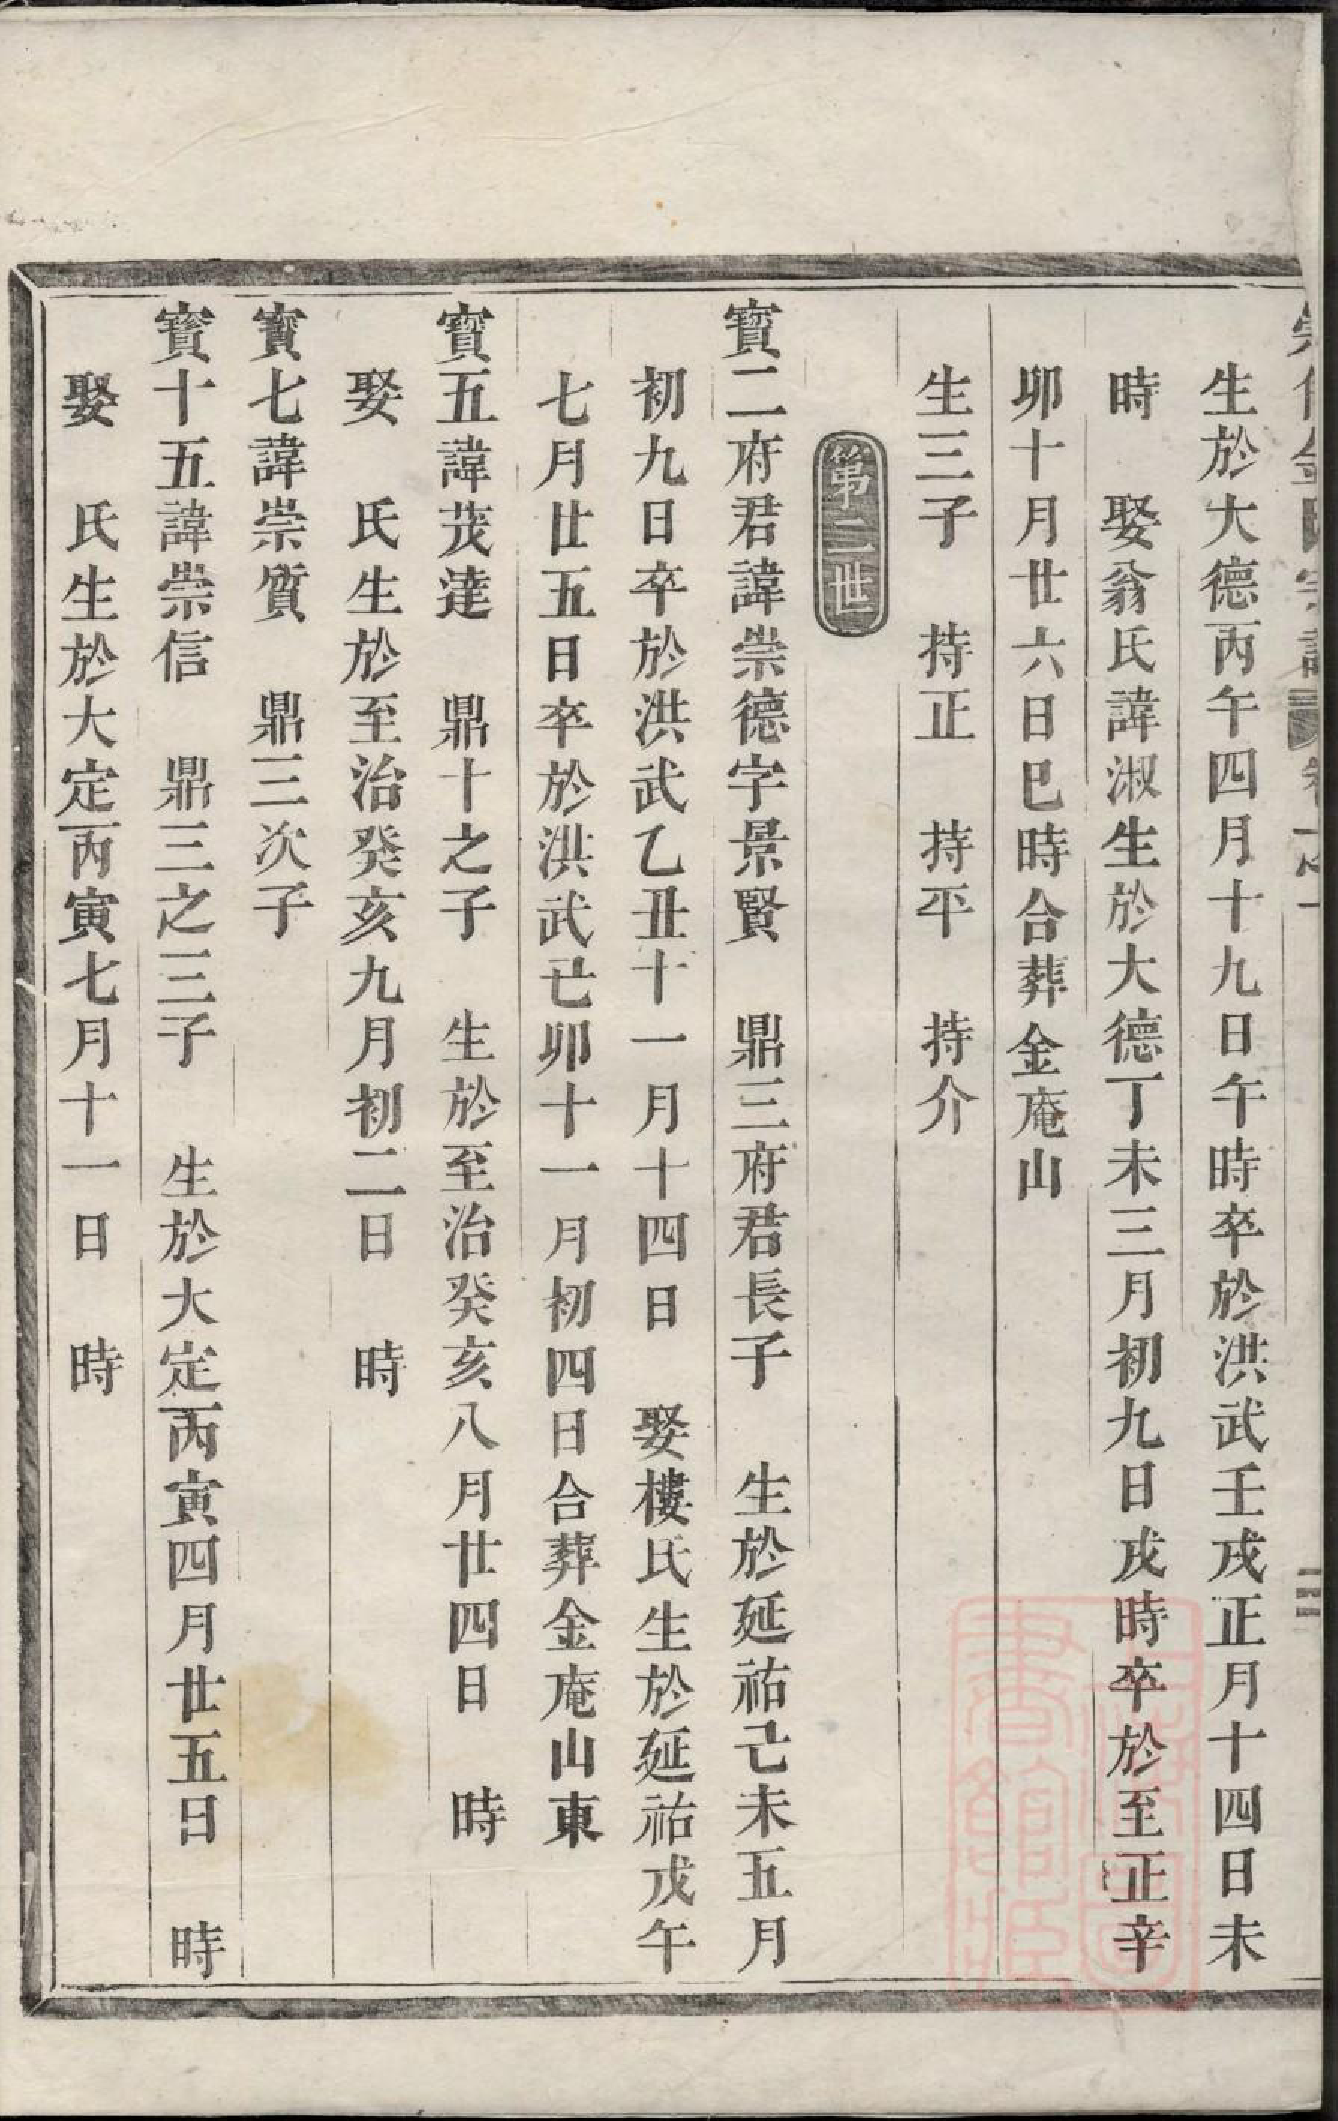 生於大德丙午四月十九日午時卒於洪武壬戌正月十四日未
時　娶翁氏諱淑生於大德丁未三月初九日戌時卒於至正辛
卯十月廿六日巳時合葬金庵山
生三子　持正　持平　持介
第二世
寳二府君諱崇德字景賢　鼎三府君長子　生於延祐己未五月
初九日卒於洪武乙丑十一月十四日　娶樓氏生於延祐戊午
七月廿五日卒於洪武己卯十一月初四日合葬金庵山東
寳五諱茂達　鼎十之子　生於至治癸亥八月廿四日　時
娶　氏生於至治癸亥九月初二日　時
寳七諱崇質　鼎三次子
寳十五諱崇信　鼎三之三子　生於大定丙寅四月廿五日　時
娶　氏生於大定丙寅七月十一日　時